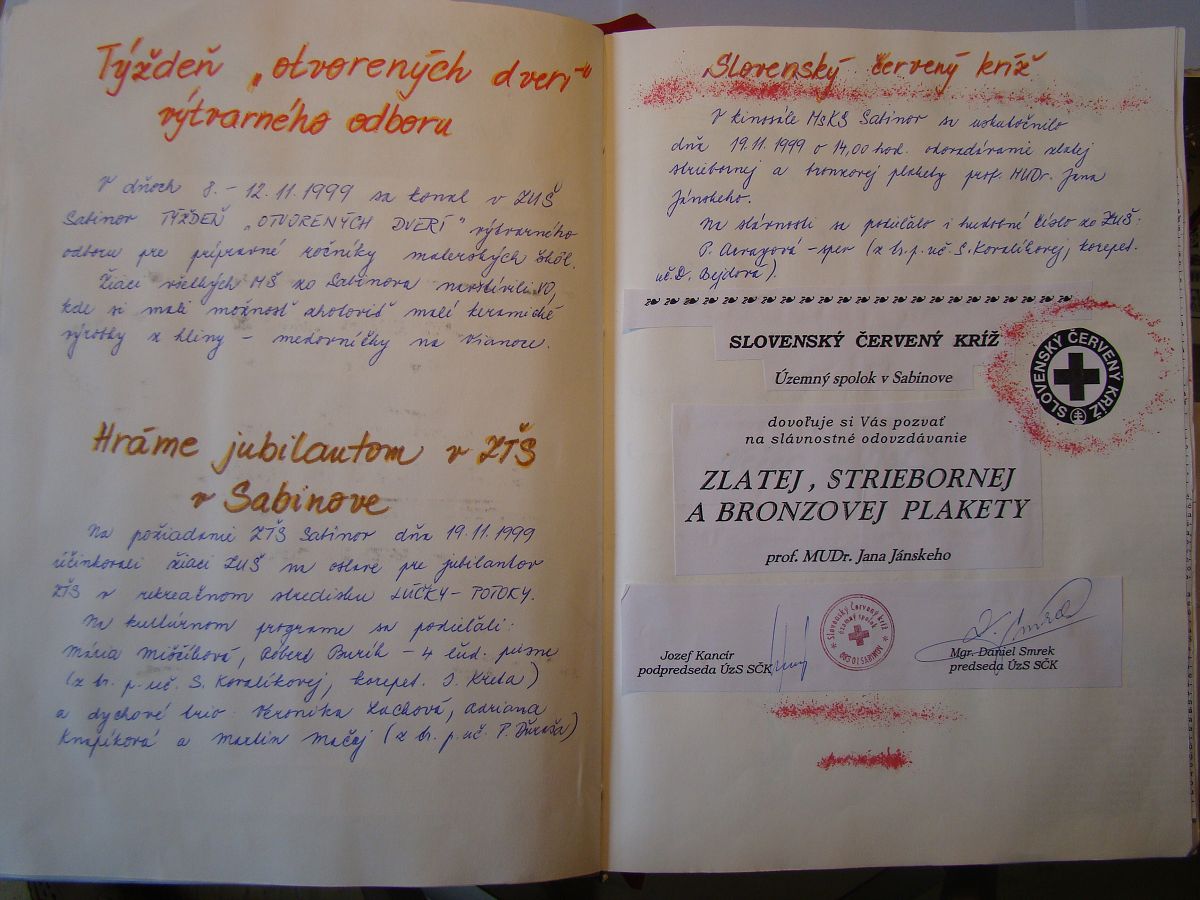 Týždeň „otvorených dverí“
výtvarného odboru
V dňoch 8. - 12.11.1999 sa konal v ZUŠ
Sabinov TÝŽDEŇ „OTVORENÝCH DVERÍ“ výtvarného
odboru pre prípravné ročníky materských škôl.
Žiaci všetkých MŠ zo Sabinova navštívili
kde si mali možnosť zhotoviť malé keramické
výrobky z hliny - medovníčky na Vianoce.
Hráme jubilantom v ZŤS
v Sabinove
Na požiadanie ZŤS Sabinov dňa 19.11.1999
účinkovali žiaci ZUŠ na oslave pre jubilantov
ZŤS v rekreačnom stredisku LÚČKY - POTOKY.
Na kultúrnom programe sa podieľali:
Mária Miščíková, Róbert Burík - 4 ľud. piesne
(z tr. p. uč. S. Kovalíkovej, korepet. J. Kreta)
a dychové trio Veronika Lachová, Adriana
Knapíková a Martin Mačej (z tr. p. uč. P. Ďuraša)
Slovenský červený kríž
V kinosále MsKS Sabinov sa uskutočnilo
dňa 19.11.1999 o 14,00 hod. odovzdávanie zlatej
striebornej a bronzovej plakety prof. MUDr. Jana
Jánskeho.
Na slávnosti sa podieľalo i hudobné číslo zo ZUŠ:
P. - spev (z tr. p. uč. S. Kovalíkovej, korepet.
uč. D. Bejdová)
SLOVENSKÝ ČERVENÝ KRÍŽ
Územný spolok v Sabinove
SLOVENSKÝ ČERVENÝ KRÍŽ
dovoľuje si Vás pozvať
na slávnostné odovzdávanie
ZLATEJ, STRIEBORNEJ
A BRONZOVEJ PLAKETY
prof. MUDr. Jana Jánskeho
Slovenský Červený kríž
územný spolok
083 01 SABINOV
Jozef Kancír
podpredseda ÚzS SČK
Mgr. Daniel Smrek
predseda ÚzS SČK